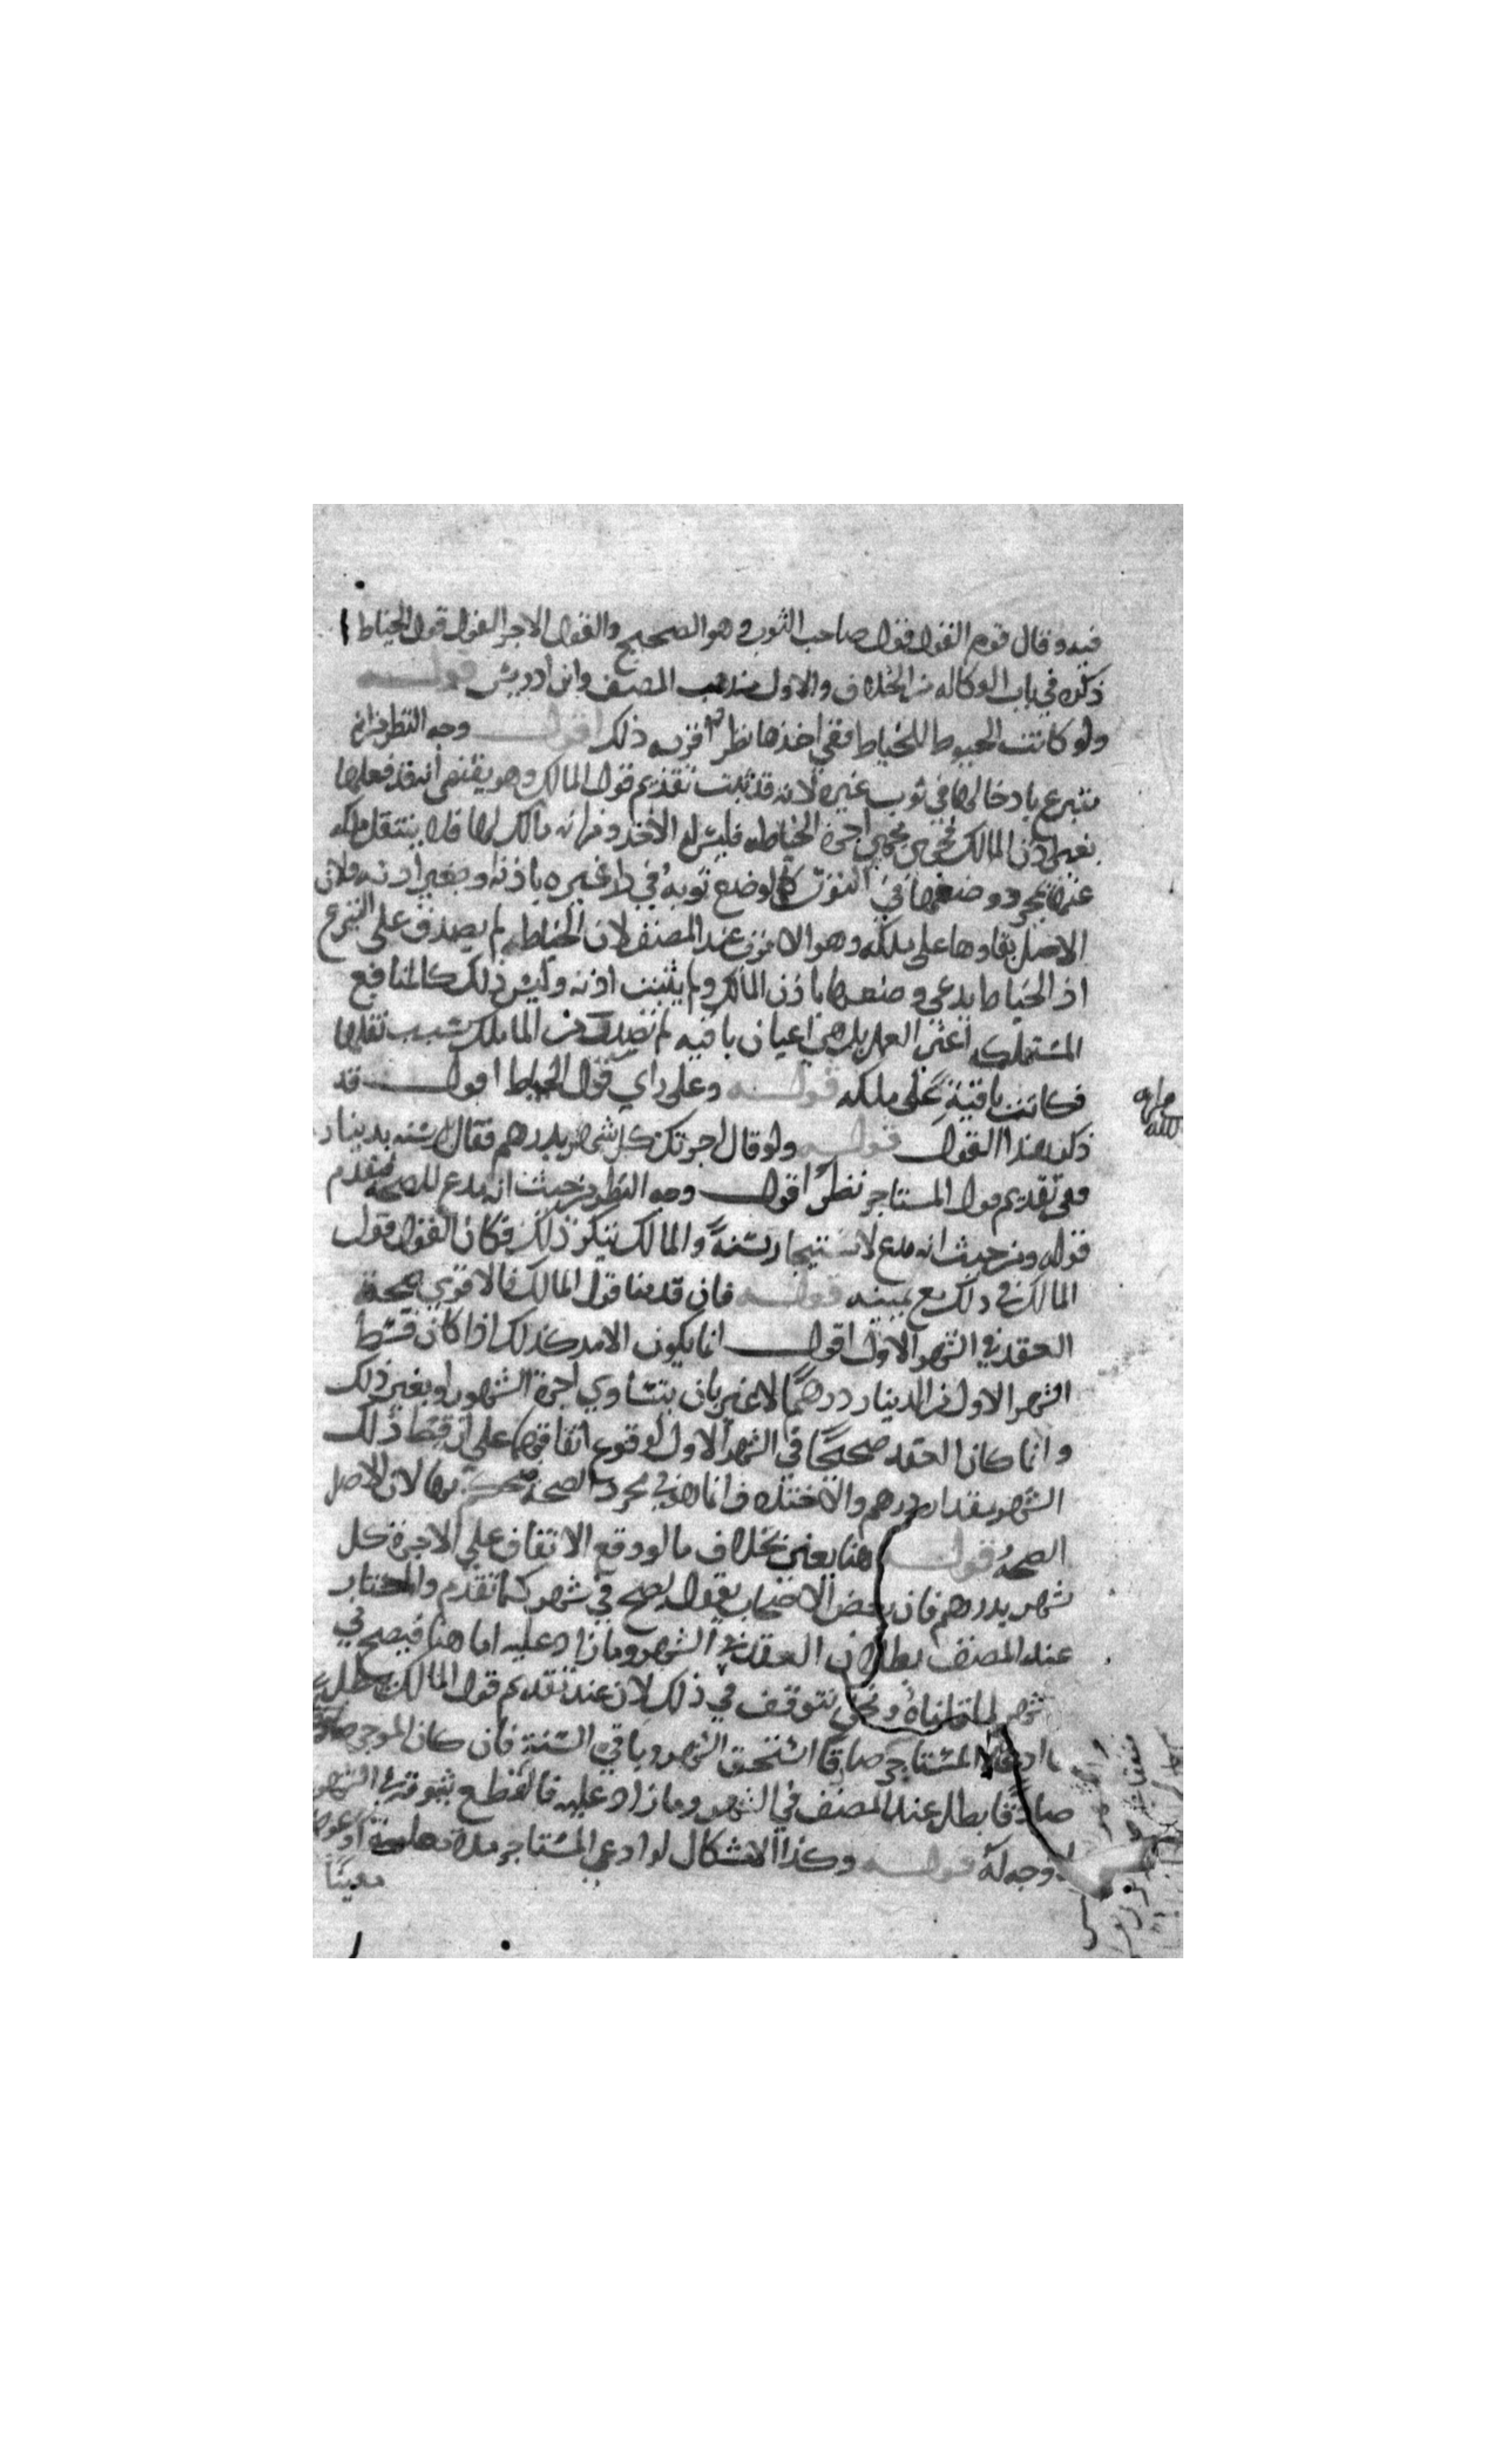 فيه وقال قوم القول قول صاحب الثوب وهو الصحيح والقول الاخر القول قول الخياط
ذكره في باب الوكاله من الخلاف والاول مذهب المصنف وابن ادريس قوله
ولو كانت الخيوط للخياط ففي اخذها نظر اقربه ذلك اقول وجه النظر من انه
متبرع بادخالها في ثوب غيره لانه قد ثبت تقديم قول المالك وهو يقتضي انه قد فعلها
بغير اذن المالك فجرى مجرى اجرة الخياطه فليس له الاخذ ومن انه مالك لها فلا ينتقل ملكه
عنها بمجرد وضعها في الثوب كما لو وضع ثوبه في دار غيره باذنه او بغير اذنه ولان
الاصل بقاوها على ملكه وهو الاقوى عند المصنف لان الخياط لم يصدق على التبرع
اذ الخياط يدعي وضعها باذن المالك ولم يثبت اذنه وليس ذلك كالمنافع
المستهلكه اعني العمل بل هي اعيان باقيه لم المالك سبب نقلها
فكانت باقية على ملكه قوله وعلى راي قول الخياط اقول قد
ذكر هذا القول قوله ولو قال اجرتك كل شهر بدرهم فقال سنه بدينار
ففي تقديم قول المستاجر نظر اقول وجه النظر من حيث انه مدع للصحة فيقدم
قوله ومن حيث انه مدع لاستيجار سنة والمالك ينكر ذلك فكان القول قول
المالك في ذلك مع يمينه قوله فان قدمنا قول المالك فالاقوى صحة
العقد في الشهر الاول اقول انما يكون الامر كذلك اذا كان قسط
الشهر الاول من الدينار درهما لا غير بان يتساوي اجرة الشهور او بغير ذلك
وانما كان العقد صحيحا في الشهر الاول لوقوع اتفاقهما على ان قسط ذلك
الشهر بمقدار درهم والاختلاف انما هو في مجرد الصحة فيحكم بها لان الاصل
الصحة قوله هنا يعني بخلاف ما لو وقع الاتفاق على الاجرة كل
شهر بدرهم فان بعض الاصحاب يقول يصح في شهر كما تقدم والمختار
عند المصنف بطلان العقد في الشهر وما زاد عليه اما هنا فيصح في
شهر لما قلناه ونحن نتوقف في ذلك لان عند تقديم قول المالك يبطل
ما ادعاه المستاجر صادقا استحق الشهر وباقي السنة فان كان الموجر
صادقا بطل عند المصنف في الشهر وما زاد عليه فالقطع بثبوته في الشهر
لا وجه له قوله وكذا الاشكال لو ادعى المستاجر مدة معلومة او عوضا
معينا